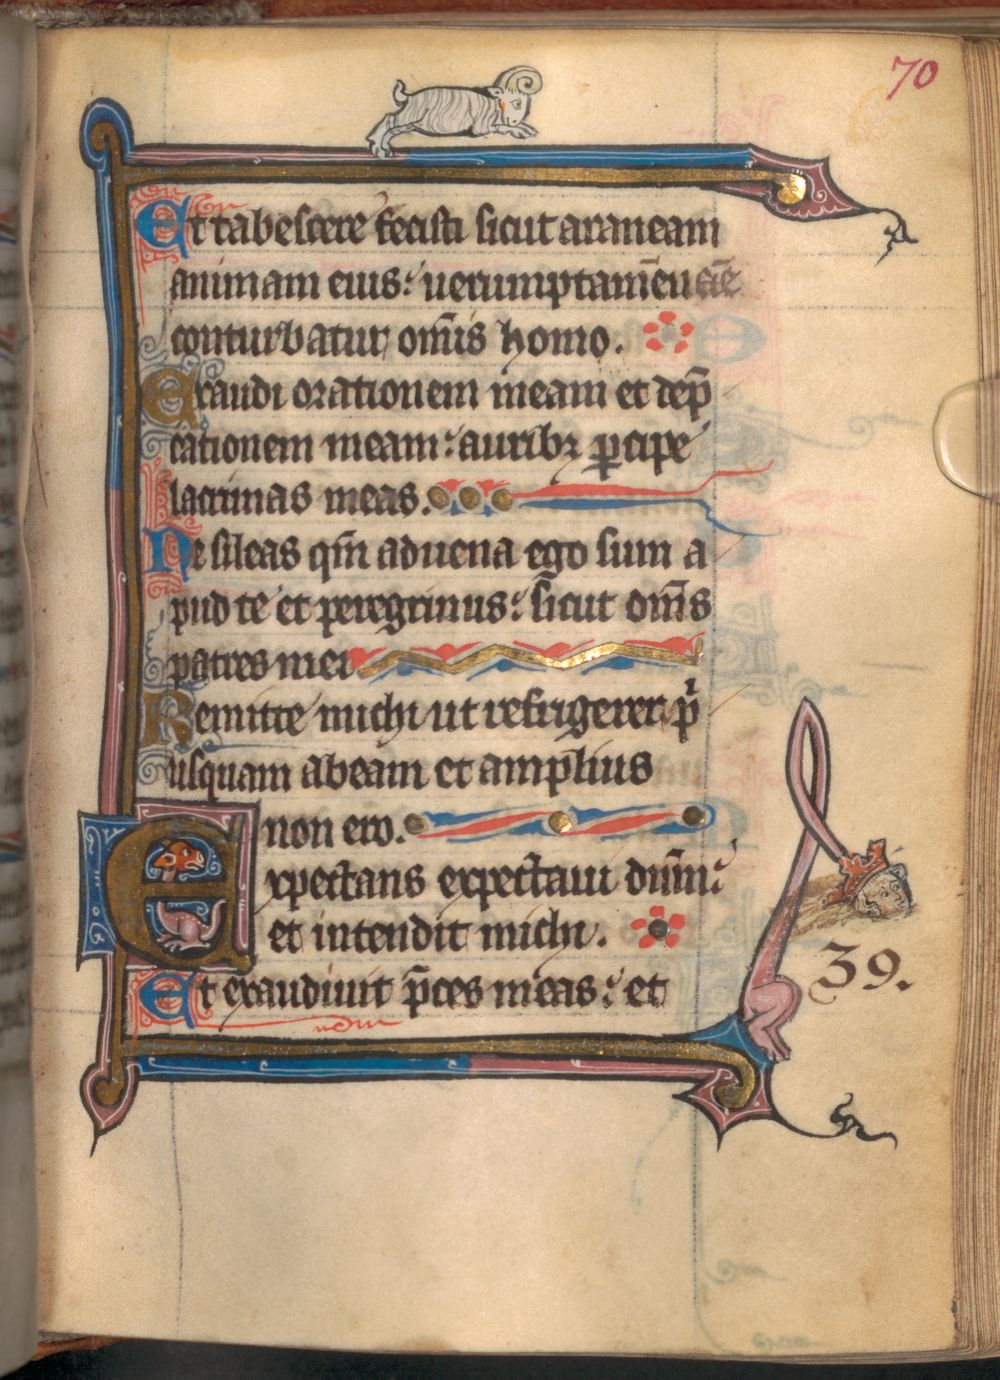 70
Et tabescere fecisti sicut araneam
animam eius: uerumptam̄ uane
conturbatur om̄is homo.
Exaudi orationem meam et dep̄
cationem meam: auribꝫ ꝑcipe
lacrimas meas.
Ne sileas qm̄ aduena ego sum a
pud te et peregrinus: sicut om̄s
patres mei
Remitte michi ut refrigerer p̄
usquam abeam et amplius
non ero.
Expectans expectaui dūm:
et intendit michi.
39.
Et exaudiuit p̄ces meas: et